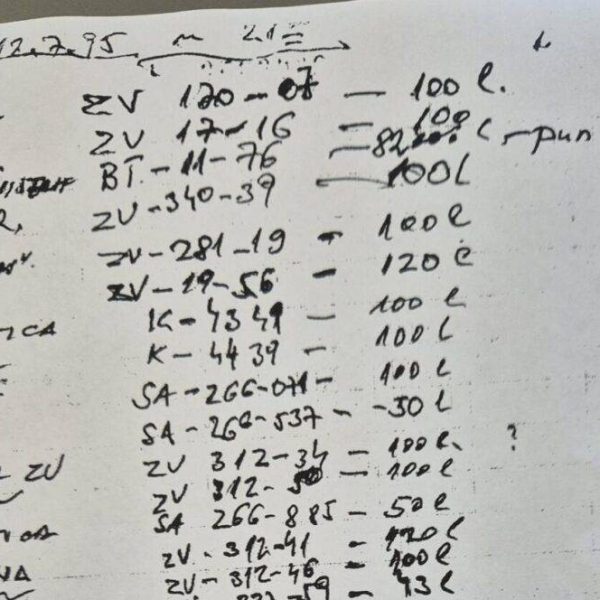 12.7.95
ZV 170-07 — 100 l.
ZV 17-16 — 100
BT-11-76 — 82 l - pun
ZV-340-39 — 100 l
ZV-281-19 - 100 l
ZV-19-56 - 120 l
K-4349 — 100 l
K-4439 - 100 l
SA-266-071 - 100 l
SA-266-537 - 50 l
?
ZU ZV 312-34 — 100 l.
ZV 312- — 100 l
SA 266-885 - 50 l
ZV-312-41 - 120 l
NA ZV-312-46 - 100 l
59 - 43 l